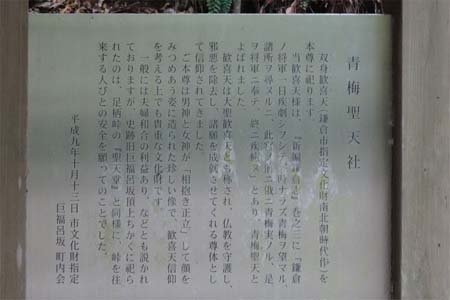 青梅聖天社
双身歓喜天(鎌倉市指定文化財南北朝時代作)を
本尊に祀ります。
当歓喜天様は、『新編鎌倉志』巻之三に「鎌倉
ノ将軍、一日疾劇シフシテ、時ナラズ青梅ヲ望マル。
諸所ヲ尋ヌルニ、此宮ノ前ニ俄ニ青梅実ノル、是
ヲ将軍ニ奉テ、終ニ疾ユ」とあり、青梅聖天と
よばれました。
歓喜天は大聖歓喜天とも称され、仏教を守護し、
邪悪を除去し、諸願を成就させてくれる尊体とし
て信仰されてきました。
ご本尊は男神と女神が「相抱き正立」して顔を
みつめあう姿に造られた珍しい像で、歓喜天信仰
を考える上でも貴重な文化財です。
一般には夫婦和合の利益あり、などとも説かれ
ておりますが、史跡旧巨福呂坂頂上ちかくに祀ら
れたのは、足柄峠の『聖天堂』と同様に、峠を往
来する人びとの安全を願ってのことでした。
平成九年十月十三日 市文化財指定
巨福呂坂 町内会